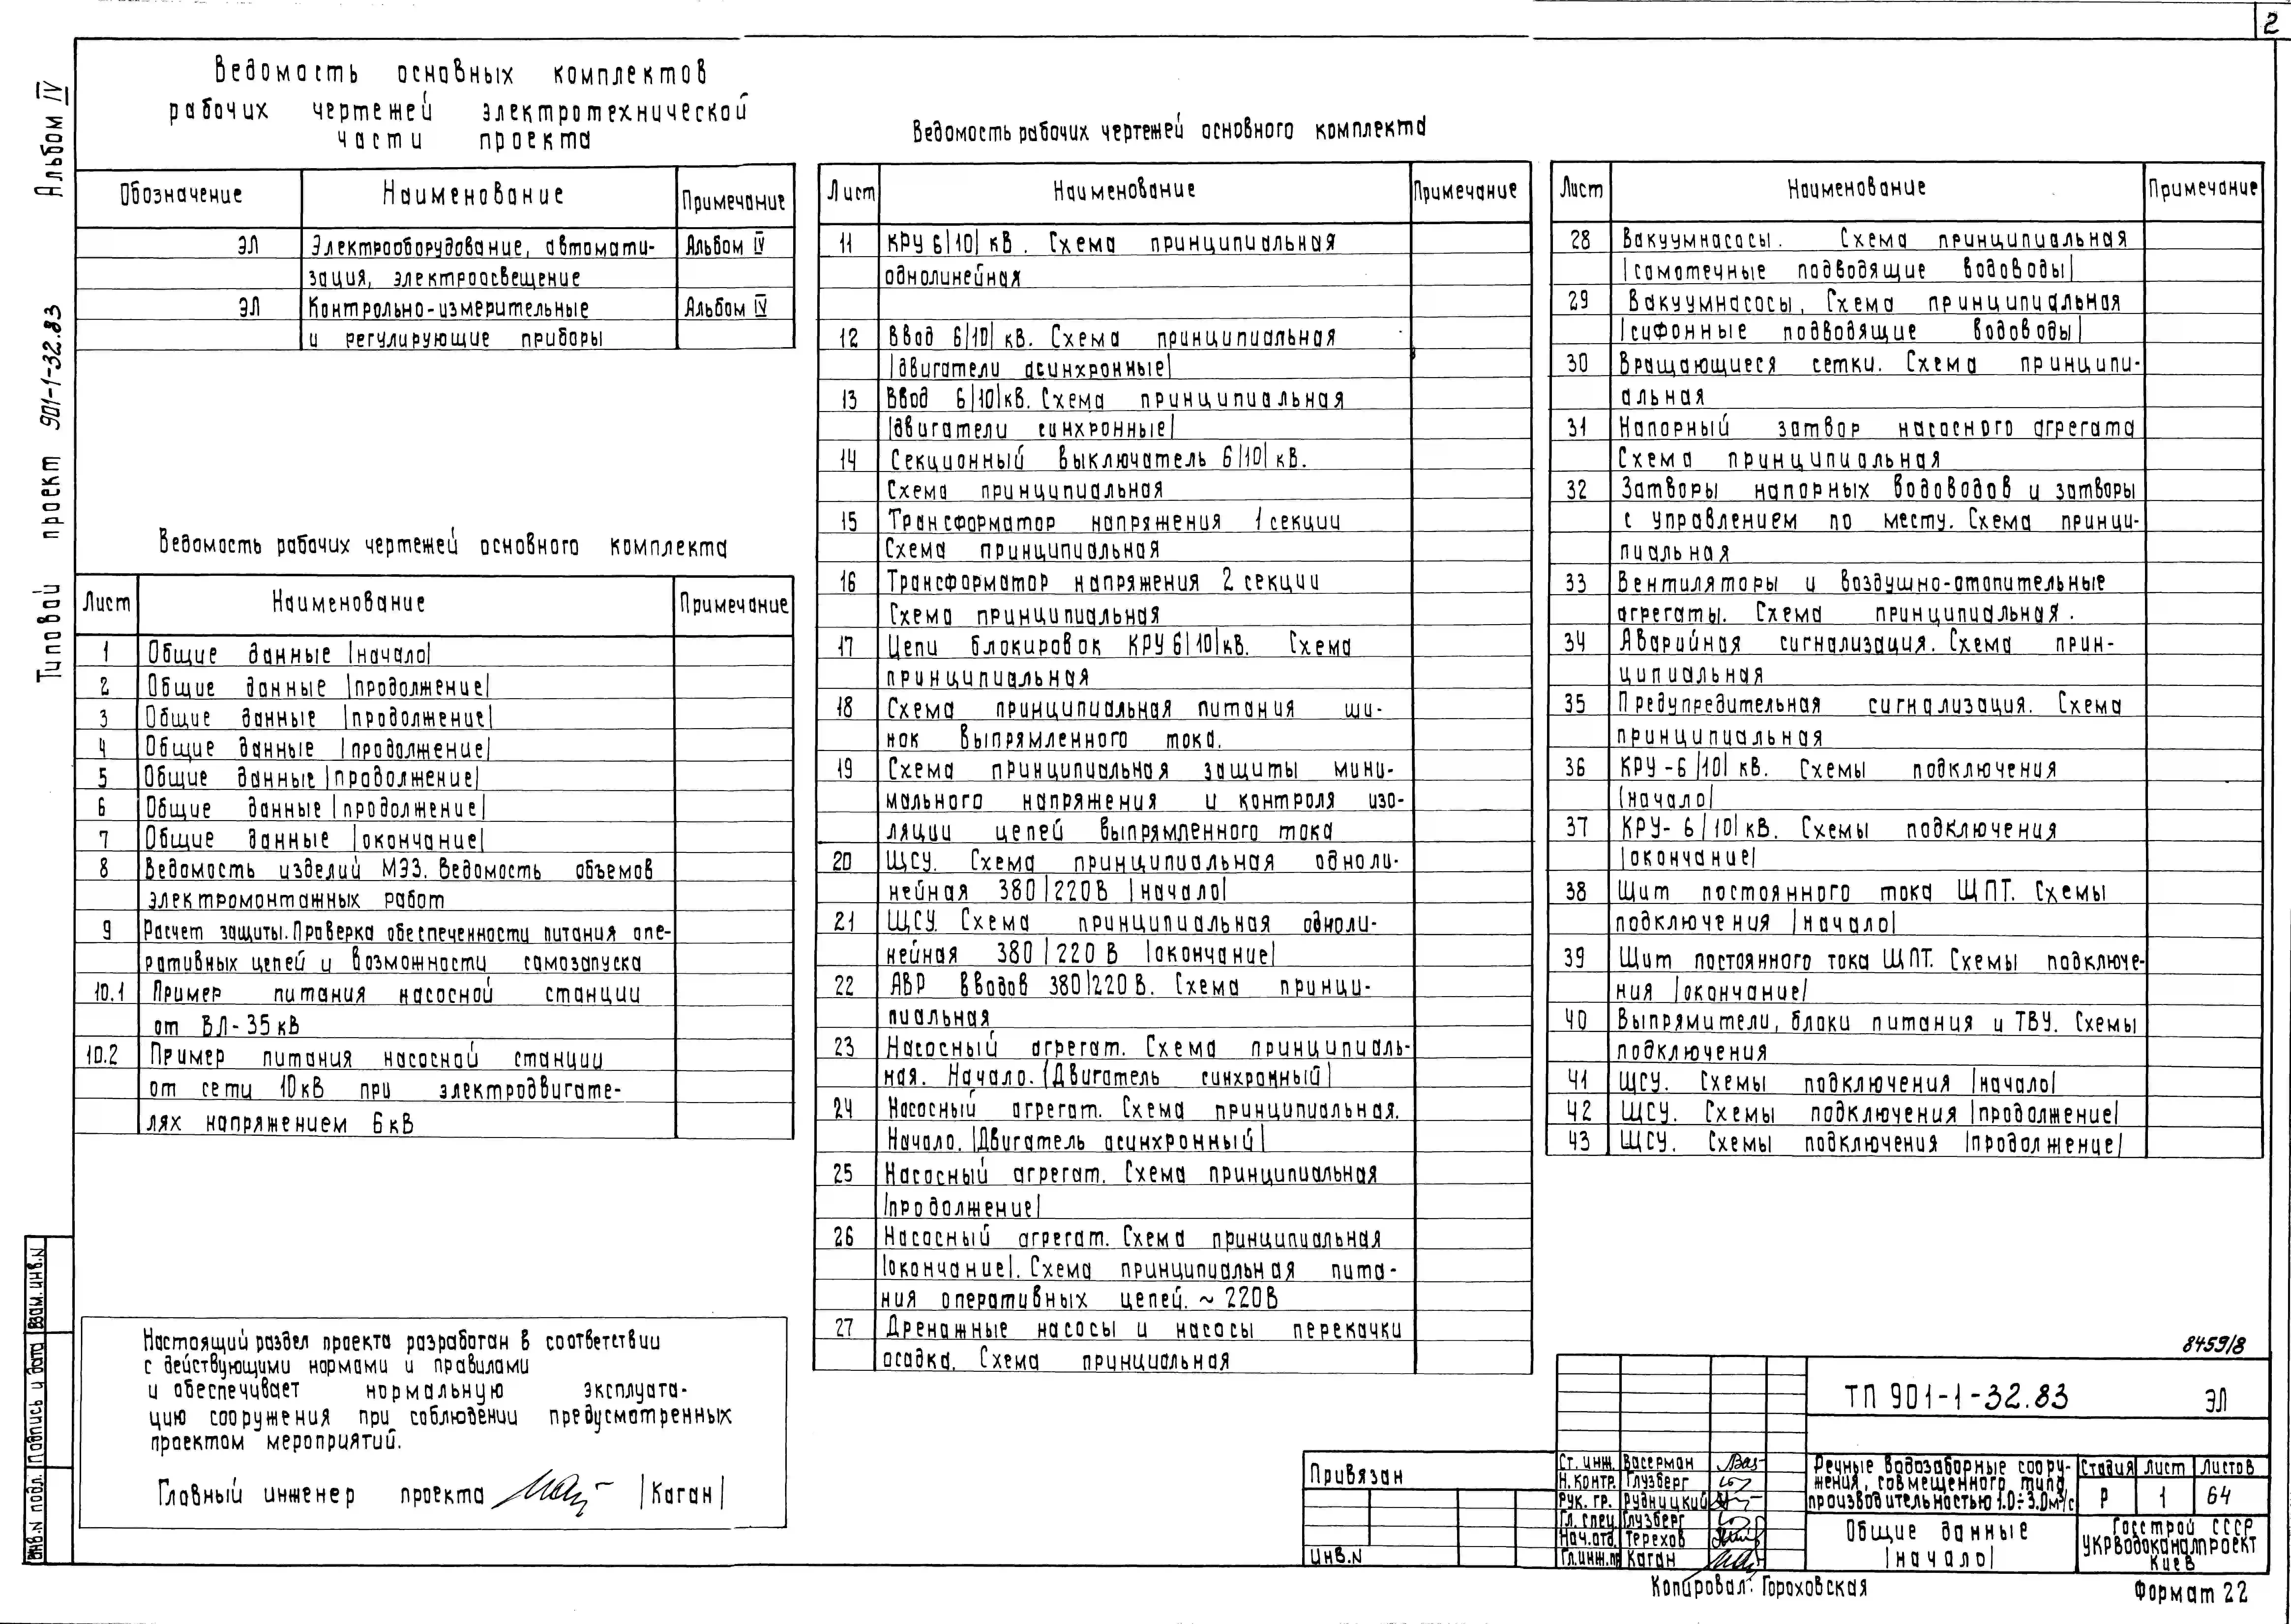 2
Альбом IV
Типовой проект 901-1-32.83
Ведомость основных комплектов
рабочих чертежей электротехнической
части проекта
Обозначение Наименование Примечание
ЭЛ Электрооборудование, автомати- Альбом IV
зация, электроосвещение
ЭЛ Контрольно-измерительные Альбом IV
и регулирующие приборы
Ведомость рабочих чертежей основного комплекта
Лист Наименование Примечание
1 Общие данные |начало|
2 Общие данные |продолжение|
3 Общие данные |продолжение|
4 Общие данные |продолжение|
5 Общие данные |продолжение|
6 Общие данные |продолжение|
7 Общие данные |окончание|
8 Ведомость изделий МЭЗ. Ведомость объемов
электромонтажных работ
9 Расчет защиты. Проверка обеспеченности питания опе-
ративных цепей и возможности самозапуска
10.1 Пример питания насосной станции
от ВЛ-35кВ
10.2 Пример питания насосной станции
от сети 10кВ при электродвигате-
лях напряжением 6кВ
Настоящий раздел проекта разработан в соответствии
с действующими нормами и правилами
и обеспечивает нормальную эксплуата-
цию сооружения при соблюдении предусмотренных
проектом мероприятий.
Главный инженер проекта |Каган|
Ведомость рабочих чертежей основного комплекта
Лист Наименование Примечание
11 КРУ 6|10| кВ. Схема принципиальная
однолинейная
12 Ввод 6|10| кВ. Схема принципиальная
|двигатели асинхронные|
13 Ввод 6|10|кВ. Схема принципиальная
|двигатели синхронные|
14 Секционный выключатель 6|10| кВ.
Схема принципиальная
15 Трансформатор напряжения 1 секции
Схема принципиальная
16 Трансформатор напряжения 2 секции
Схема принципиальная
17 Цепи блокировок КРУ 6|10|кВ. Схема
принципиальная
18 Схема принципиальная питания ши-
нок выпрямленного тока.
19 Схема принципиальная защиты мини-
мального напряжения и контроля изо-
ляции цепей выпрямленного тока
20 ЩСУ. Схема принципиальная одноли-
нейная 380/220В |начало|
21 ЩСУ. Схема принципиальная одноли-
нейная 380/220 В |окончание|
22 АВР вводов 380/220 В. Схема принци-
пиальная
23 Насосный агрегат. Схема принципиаль-
ная. Начало. |Двигатель синхронный|
24 Насосный агрегат. Схема принципиальная.
Начало. |Двигатель асинхронный|
25 Насосный агрегат. Схема принципиальная
|продолжение|
26 Насосный агрегат. Схема принципиальная
|окончание|. Схема принципиальная пита-
ния оперативных цепей. ~ 220В
27 Дренажные насосы и насосы перекачки
осадка. Схема принциальная
Лист Наименование Примечание
28 Вакуумнасосы. Схема принципиальная
|самотечные подводящие водоводы|
29 Вакуумнасосы, Схема принципиальная
|сифонные подводящие водоводы|
30 Вращающиеся сетки. Схема принципи-
альная
31 Напорный затвор насосного агрегата
Схема принципиальная
32 Затворы напорных водоводов и затворы
с управлением по месту. Схема принци-
пиальная
33 Вентиляторы и воздушно-отопительные
агрегаты. Схема принципиальная.
34 Аварийная сигнализация. Схема прин-
ципиальная
35 Предупредительная сигнализация. Схема
принципиальная
36 КРУ-6 |10| кВ. Схемы подключения
|начало|
37 КРУ- 6 |10| кВ. Схемы подключения
|окончание|
38 Щит постоянного тока ЩПТ. Схемы
подключения |начало|
39 Щит постоянного тока ЩПТ. Схемы подключе-
ния |окончание|
40 Выпрямители, блоки питания и ТВУ. Схемы
подключения
41 ЩСУ. Схемы подключения |начало|
42 ЩСУ. Схемы подключения |продолжение|
43 ЩСУ. Схемы подключения |продолжение|
8459/8
ТП 901-1-32.83 ЭЛ
Привязан
Инв.N
Ст. инж. Васерман
Н.контр. Глузберг
Рук. гр. Рудницкий
Гл. спец. Глузберг
Нач.отд. Терехов
Гл.инж.пр Каган
Речные водозаборные соору-
жения, совмещенного типа
производительностью 1.0÷3.0м³/с
Стадия Лист Листов
Р 1 64
Общие данные
|начало|
Госстрой СССР
УКРВОДОКАНАЛПРОЕКТ
Киев
Копировал: Гороховская
Формат 22
Взам. инв.N
Подпись и дата
Инв.N подл.